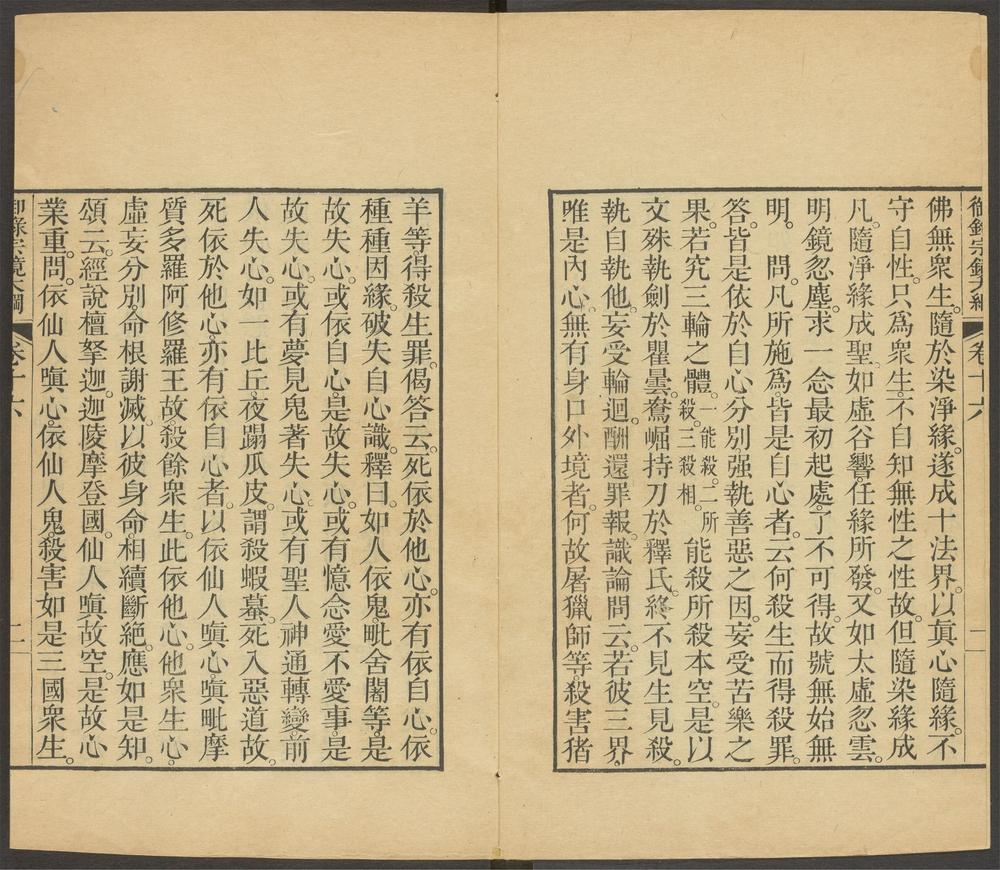 御錄宗鏡大綱
卷十六
佛無衆生。隨於染淨緣。遂成十法界。以眞心隨緣。不
守自性。只爲衆生不自知無性之性故。但隨染緣成
凡。隨淨緣成聖。如虛谷響。任緣所發。又如太虛忽雲。
明鏡忽塵。求一念最初起處。了不可得。故號無始無
明。　問。凡所施爲。皆是自心者。云何殺生而得殺罪。
答。皆是依於自心分別。强執善惡之因。妄受苦樂之
果。若究三輪之體。一能殺。二所殺。三殺相。能殺所殺本空。是以
文殊執劍於瞿曇。鴦崛持刀於釋氏。終不見生見殺。
執自執他。妄受輪迴。酬還罪報。識論問云。若彼三界。
唯是內心。無有身口外境者。何故屠獵師等。殺害猪
羊等。得殺生罪。偈答云。死依於他心。亦有依自心。依
種種因緣。破失自心識。釋曰。如人依鬼。毗舍闍等。是
故失心。或依自心。是故失心。或有憶念愛不愛事。是
故失心。或有夢見鬼著失心。或有聖人神通轉變前
人失心。如一比丘。夜蹋瓜皮。謂殺蝦蟇。死入惡道。故
死依於他心。亦有依自心者。以依仙人瞋心。瞋毗摩
質多羅阿修羅王。故殺餘衆生。此依他心。他衆生心。
虛妄分別。命根謝滅。以彼身命。相續斷絕。應如是知。
頌云。經說檀拏迦。迦陵摩登國。仙人瞋故空。是故心
業重。問。依仙人瞋心。依仙人鬼。殺害如是三國衆生。
御錄宗鏡大綱
卷十六
二